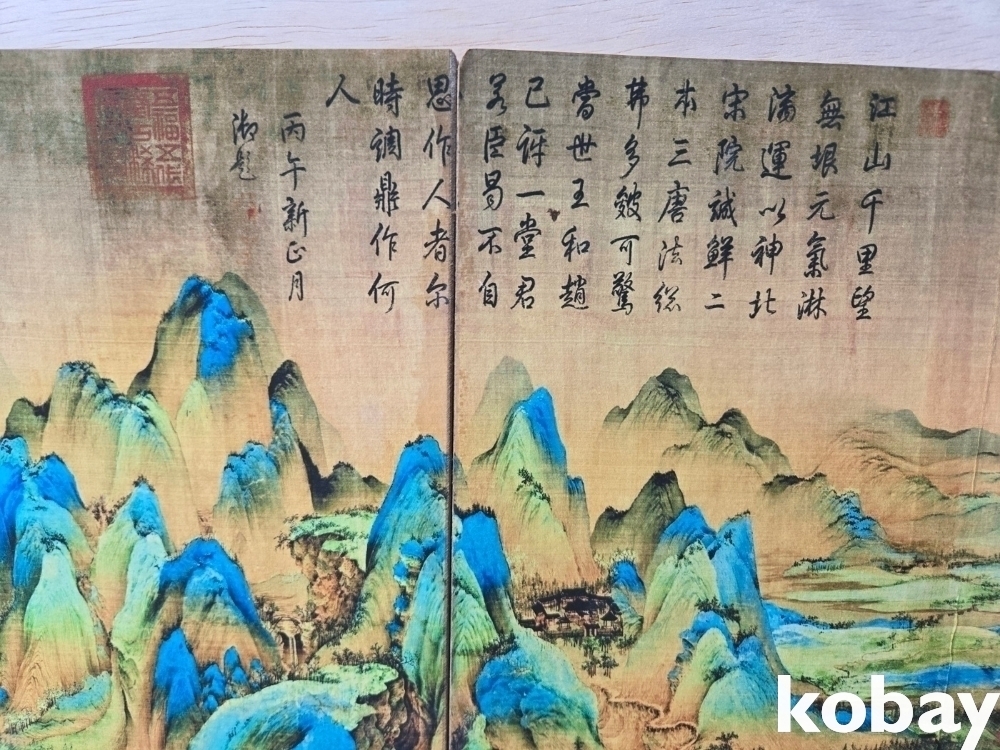 江山千里望
無垠元氣淋
漓運以神北
宋院誠鮮二
本三唐法總
弗多皴可驚
當世王和趙
已訝一堂君
若臣曷不自
思作人者尔
時調鼎作何
人
丙午新正月
御題
kobay